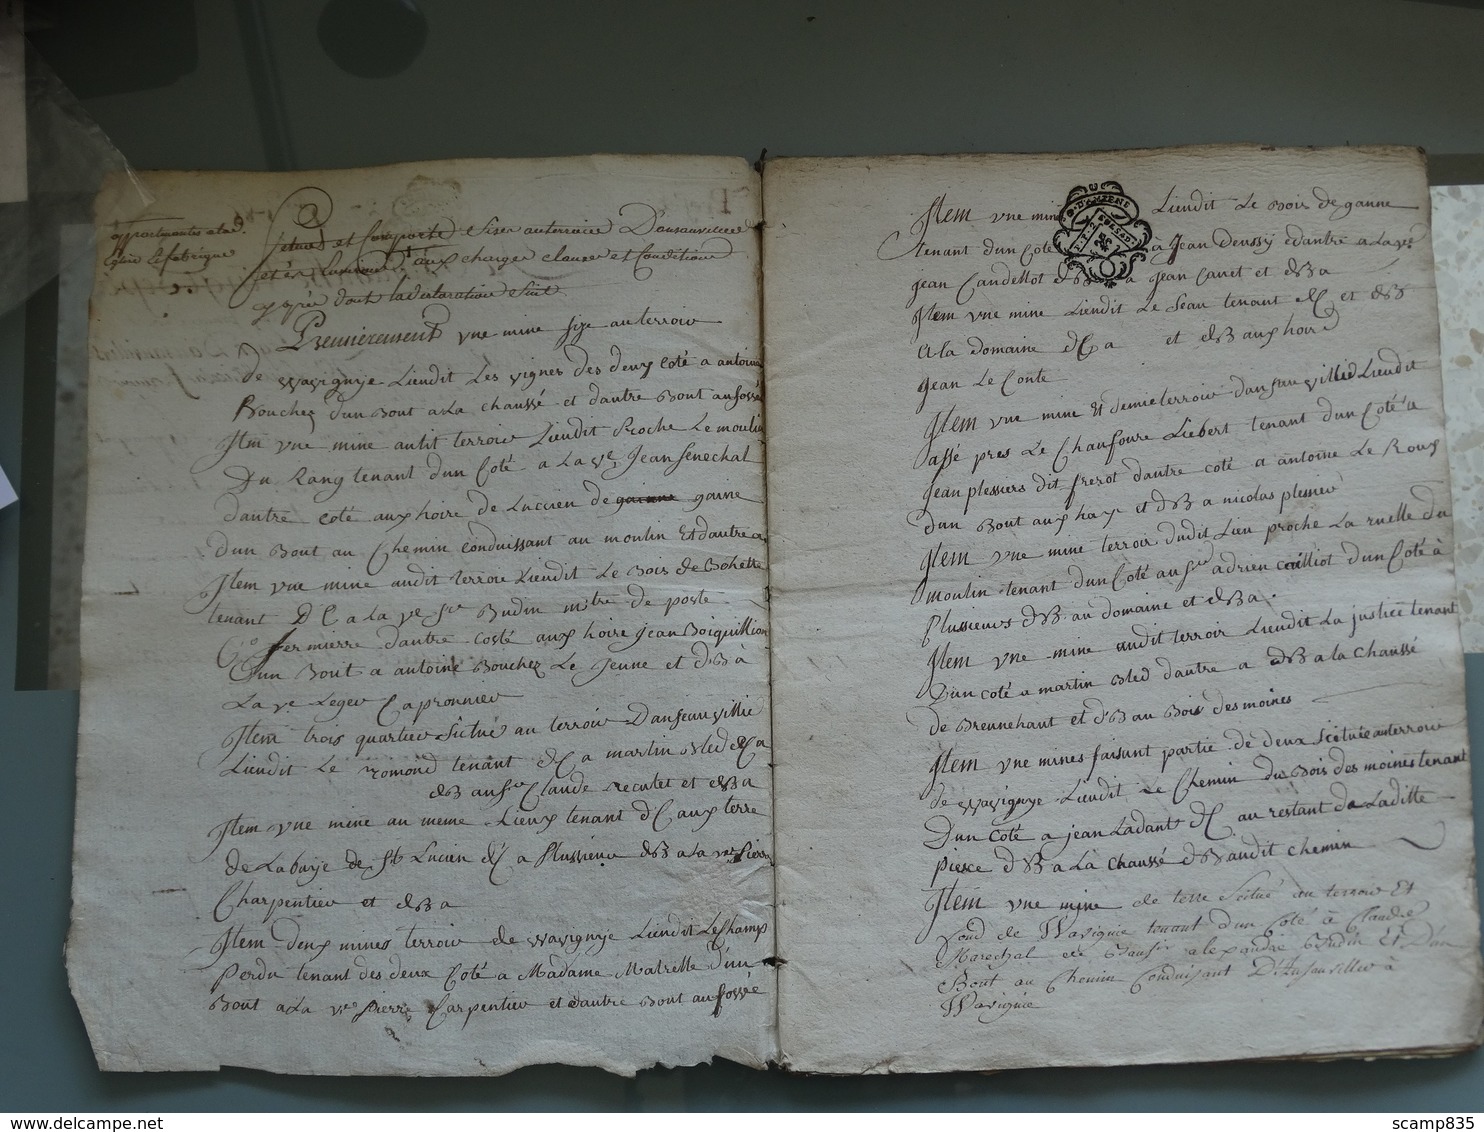 appartenantes a lad.
Eglise et fabrique
scitués et Comporté Sizes au terroir Dansauviller
et es Environs aux charges clauses et Conditions
dont la declaration Suit
Premierement vne mine size au terroir
de wavignÿe Liendit Les vignes des deux coté a antoine
Bouchez d'un Bout a La chaussé et d'autre Bout au fossé
Jtem vne mine audit terroir Liendit Proche Le moulin
Du Rang tenant d'un Coté a La ve. Jean Senechal
d'autre coté aux hoire de Lucien de garenne gaine
D'un Bout au Chemin conduissant au moulin Et d'autre a
Jtem vne mine audit terroir Liendit Le Bois de Bohette
tenant D C a La ve Sr Budin mtre de poste
fermierre d'autre costé aux hoire Jean Boiquillion
d'un Bout a antoine Bouchez Le Jeune et d'B à
La ve Leger Capronnier
Jtem trois quartier Scitué au terroir Dansauvillié
Liendit Le romond tenant d'C a martin Bled d'C a
d'B au Sr Claude recullet et d'B a
Jtem vne mine au meme Lieux tenant d'C aux terre
de Labaÿe de St Lucien d'C a Plussieur d'B a La ve Pierre
Charpentier et d'B a
Jtem deux mines terroir de wavignÿe Liendit Le Champ
Perdu tenant des deux Coté a Madame Matrelle d'un
Bout a La ve Pierre Carpentier et d'autre Bout au fossée
Jtem vne mine Liendit Le Bois de ganne
tenant d'un Coté a Jean Deussÿ d'autre a La ve
Jean Candellot d'B a Jean Canet et d'B a
Jtem vne mine Liendit Le Jean tenant d'C et d'B
a La domaine d'C a et d'B aux hoire
Jean Le Conte
Jtem vne mine Et demie terroir dansauvillié Liendit
assé pres Le Chaufoure Liebert tenant d'un Coté a
Jean plessiers dit frerot d'autre coté a antoine Le Roux
d'un Bout aux haÿ et d'B a nicolas plessier
Jtem vne mine terroir dudit Lieu proche La ruelle du
moulin tenant d'un Coté au Sr adrien coüilliot d'un Coté à
Plussieurs d'B au domaine et d'B a
Jtem vne mine audit terroir Liendit La justice tenant
D'un coté a martin Bled d'autre a d'B a la chaussé
de Breunehaut et d'B au Bois des moines
Jtem vne mines faisant partie de deux Scituée au terroir
de wavignÿe Liendit Le Chemin du Bois des moines tenant
D'un coté a jean Ladant d'C au restant de Laditte
piesce d'B a La chaussé d'B audit chemin
Jtem vne mine de terre Scitué au terroir Et
fond de Wavignie tenant d'un Coté à Claude
Marechal alexandre Budin Et d'un
Bout au Chemin Conduisant D'Ansauviller à
Wavignie
scamp835